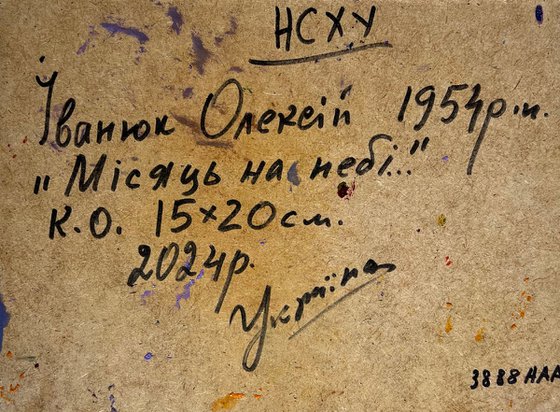 НСХУ
Іванюк Олексій 1954р.н.
"Місяць на небі..."
к.о. 15×20см.
2024р.
Україна
3888 НАР